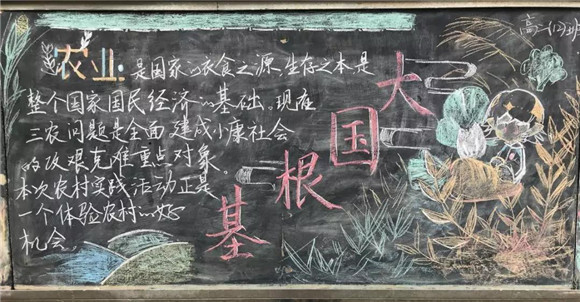 农业是国家的衣食之源、生存之本是
整个国家国民经济的基础。现在
三农问题是全面建成小康社会
的攻艰克难重点对象。
本次农村实践活动正是
一个体验农村的好
机会。
大国根基
高一(12)班